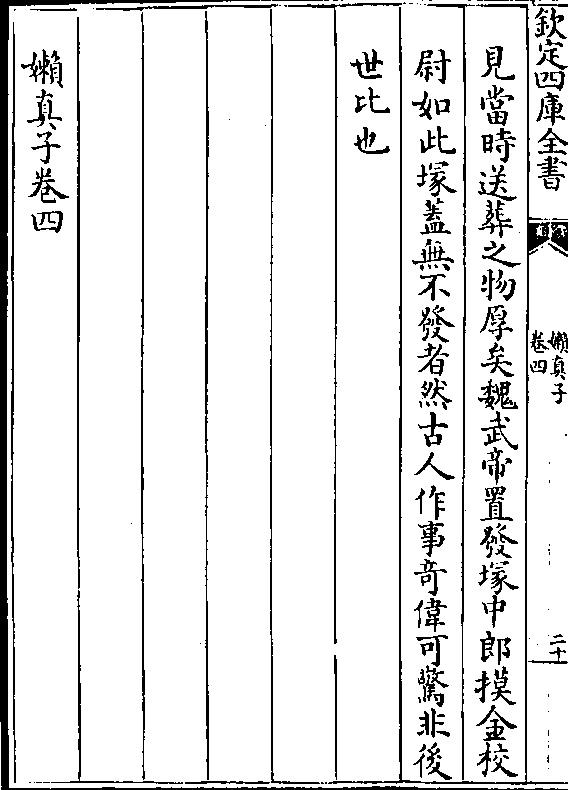 欽定四庫全書
嬾真子
卷四
二十
見當時送葬之物厚矣魏武帝置發塚中郎摸金校
尉如此塚蓋無不發者然古人作事奇偉可驚非後
世比也
嬾真子卷四